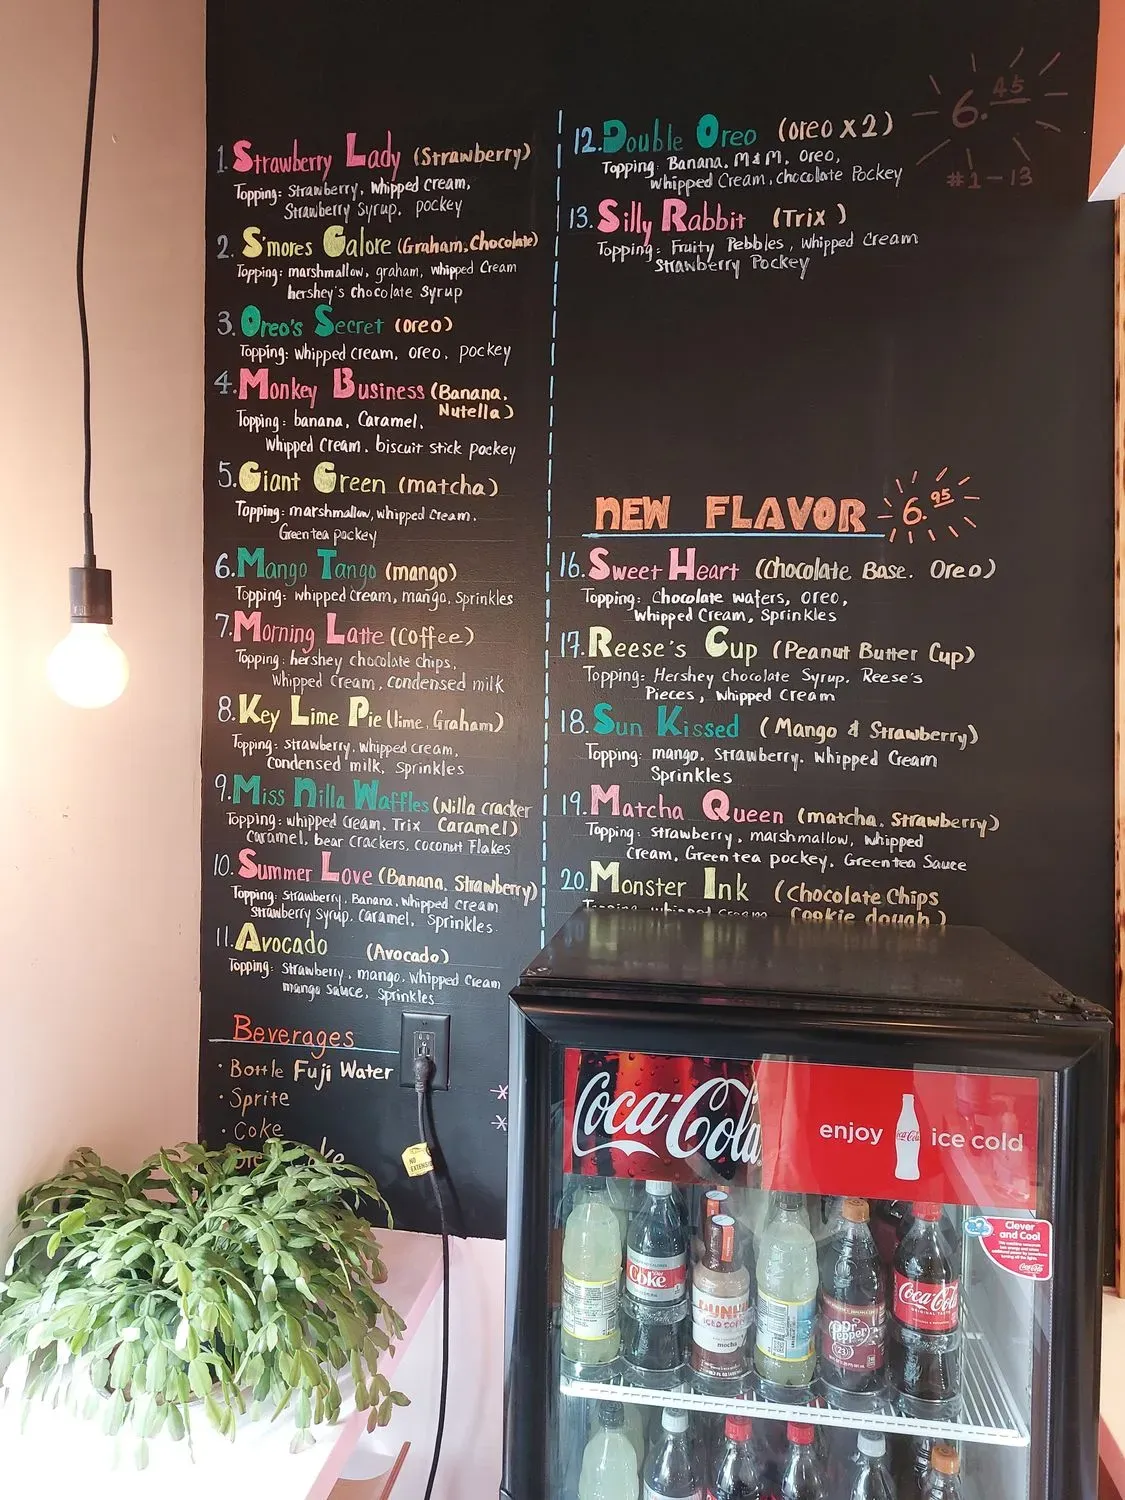 1. Strawberry Lady (Strawberry)
Topping: Strawberry, whipped cream,
Strawberry Syrup. pockey
2. S'mores Galore (Graham, Chocolate)
Topping: marshmallow, graham, whipped Cream
hershey's chocolate syrup
3. Oreo's Secret (oreo)
Topping: whipped cream, oreo, pockey
4. Monkey Business (Banana,
Nutella)
Topping: banana, Caramel,
Whipped Cream. biscuit stick pockey
5. Giant Green (matcha)
Topping: marshmallow, whipped cream.
Greentea pockey
6. Mango Tango (mango)
Topping: whipped cream, mango, sprinkles
7. Morning Latte (Coffee)
Topping: hershey chocolate chips,
Whipped Cream, condensed milk
8. Key Lime Pie (lime, Graham)
Topping: strawberry, whipped cream,
Condensed milk, sprinkles
9. Miss Nilla Waffles (Nilla cracker
Caramel)
Topping: whipped cream, Trix
Caramel, bear crackers, coconut Flakes
10. Summer Love (Banana, Strawberry)
Topping: strawberry, Banana, whipped cream
Strawberry Syrup, Caramel, Sprinkles
11. Avocado (Avocado)
Topping: strawberry, mango, whipped cream
mango sauce, sprinkles
Beverages
· Bottle Fuji Water
· Sprite
· Coke
12. Double Oreo (oreo x 2)
Topping: Banana, M&M, oreo,
whipped Cream, chocolate Pockey
13. Silly Rabbit (Trix)
Topping: Fruity Pebbles, whipped Cream
Strawberry Pockey
6.45
#1-13
NEW FLAVOR 6.95
16. Sweet Heart (Chocolate Base. Oreo)
Topping: Chocolate wafers, oreo,
Whipped Cream, Sprinkles
17. Reese's Cup (Peanut Butter Cup)
Topping: Hershey chocolate Syrup. Reese's
Pieces, whipped cream
18. Sun Kissed (Mango & Strawberry)
Topping: mango, Strawberry, whipped Cream
Sprinkles
19. Matcha Queen (matcha, Strawberry)
Topping: strawberry, marshmallow, whipped
Cream, Green tea pockey, Greentea Sauce
20. Monster Ink (Chocolate Chips
Cookie dough)
Topping: whipped cream
Coca-Cola
enjoy Coca-Cola ice cold
Clever
and Cool
Coke
DUNKIN'
ICED COFFEE
mocha
Dr Pepper
23
Coca-Cola